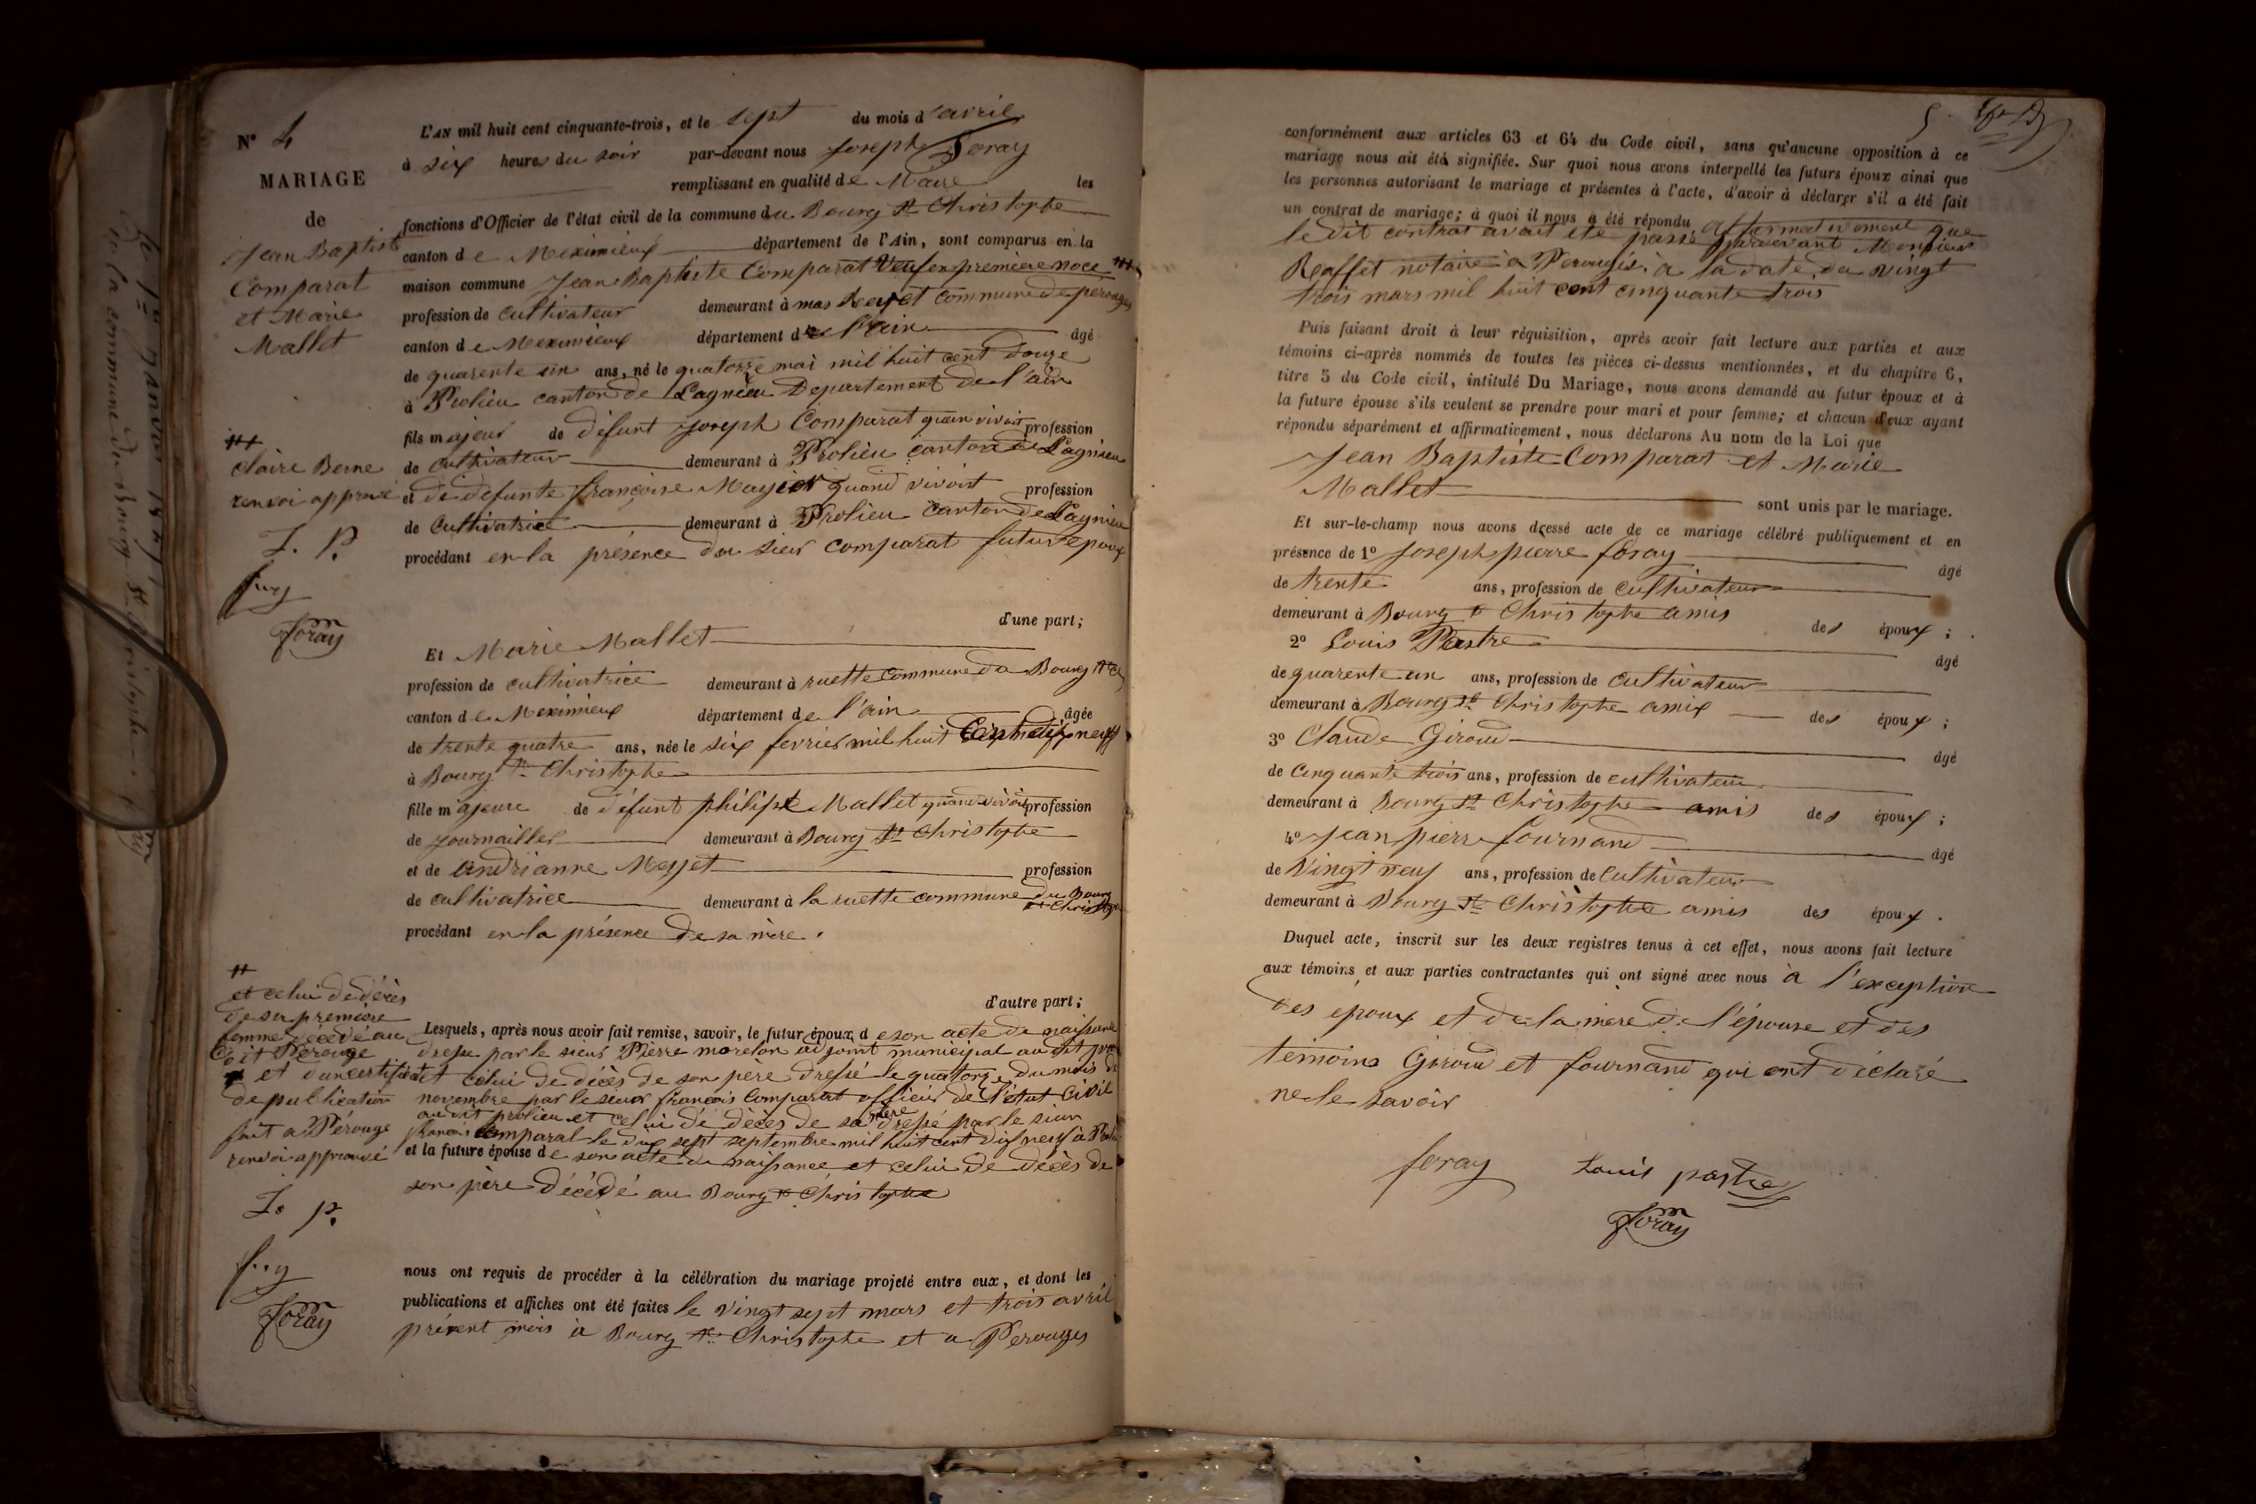 N° 4
MARIAGE
de
Jean Baptiste
Comparat
et Marie
Mallet
L'AN mil huit cent cinquante-trois, et le sept du mois d'avril
à six heures du soir par-devant nous Joseph Foray
remplissant en qualité de Maire les
fonctions d'Officier de l'état civil de la commune du Bourg St Christophe
canton de Meximieux département de l'Ain, sont comparus en la
maison commune Jean Baptiste Comparat Veuf en premiere noce
profession de cultivateur demeurant à mas commune de perouges
canton de Meximieux département de l'ain âgé
de quarente un ans, né le quatorze mai mil huit cent douze
à Prolieu canton de Lagnieu Departement de l'ain
fils majeur de défunt Joseph Comparat quan vivoit profession
de cultivateur demeurant à Prolieu canton de Lagnieu
et de defunte françoise quand vivoit profession
de Cultivatrice demeurant à Prolieu canton de Lagnieu
procédant en la présence du sieur comparat futur epoux
d'une part;
claire Berne
renvoi approuvé
J. P.
foray
Foray
Et Marie Mallet
profession de cultivatrice demeurant à ruette commune du Bourg St
canton de Meximieux département de l'ain âgée
de trente quatre ans, née le six fevrier mil huit cent dix neuf
à Bourg St Christophe
fille majeure de défunt philipe Mallet quand vivoit profession
de journaillier demeurant à Bourg St Christophe
et de Andrianne profession
de cultivatrice demeurant à la ruette commune du Bourg
St Christophe
procédant en la présence de sa mère.
d'autre part;
et celui de décès
de sa premiere
femme décédé au
dit Perouge
et d'un certificat
de publication
fait a Pérouge
renvoi approuvé
J. P.
foray
Foray
Lesquels, après nous avoir fait remise, savoir, le futur époux de son acte de naissance
dressé par le sieur Pierre morelon adjoint municipal au dit
et celui de décès de son père dressé le quatorze du mois de
novembre par le sieur françois Comparat officier de l'état civil
au dit prolieu et celui de décès de sa mère dressé par le sieur
françois comparat le dix sept septembre mil huit cent dix neuf à
et la future épouse de son acte de naissance et celui de décès de
son père décédé au Bourg St Christophe
nous ont requis de procéder à la célébration du mariage projeté entre eux, et dont les
publications et affiches ont été faites le vingt sept mars et trois avril
présent mois à Bourg St Christophe et a Perouges
5
conformément aux articles 63 et 64 du Code civil, sans qu'aucune opposition à ce
mariage nous ait été signifiée. Sur quoi nous avons interpellé les futurs époux ainsi que
les personnes autorisant le mariage et présentes à l'acte, d'avoir à déclarer s'il a été fait
un contrat de mariage; à quoi il nous a été répondu affirmativement que
le dit contrat avait été passé pardevant Monsieur
Raffet notaire à Perouges à la date du vingt
trois mars mil huit cent cinquante trois
Puis faisant droit à leur réquisition, après avoir fait lecture aux parties et aux
témoins ci-après nommés de toutes les pièces ci-dessus mentionnées, et du chapitre 6,
titre 5 du Code civil, intitulé Du Mariage, nous avons demandé au futur époux et à
la future épouse s'ils veulent se prendre pour mari et pour femme; et chacun d'eux ayant
répondu séparément et affirmativement, nous déclarons Au nom de la Loi que
Jean Baptiste Comparat et Marie
Mallet sont unis par le mariage.
Et sur-le-champ nous avons dressé acte de ce mariage célébré publiquement et en
présence de 1° Joseph pierre foray âgé
de trente ans, profession de cultivateur
demeurant à Bourg St Christophe amis des époux;
2° Louis Pastre âgé
de quarente un ans, profession de cultivateur
demeurant à Bourg St Christophe amix des époux;
3° Claude Giroud âgé
de cinquante trois ans, profession de cultivateur
demeurant à Bourg St Christophe amis des époux;
4° Jean pierre fournand âgé
de Vingt neuf ans, profession de Cultivateur
demeurant à Bourg St Christophe amis des époux.
Duquel acte, inscrit sur les deux registres tenus à cet effet, nous avons fait lecture
aux témoins et aux parties contractantes qui ont signé avec nous à l'exception
des époux et de la mère de l'épouse et des
témoins Giroud et fournand qui ont déclaré
ne le savoir
foray Louis pastre
Foray